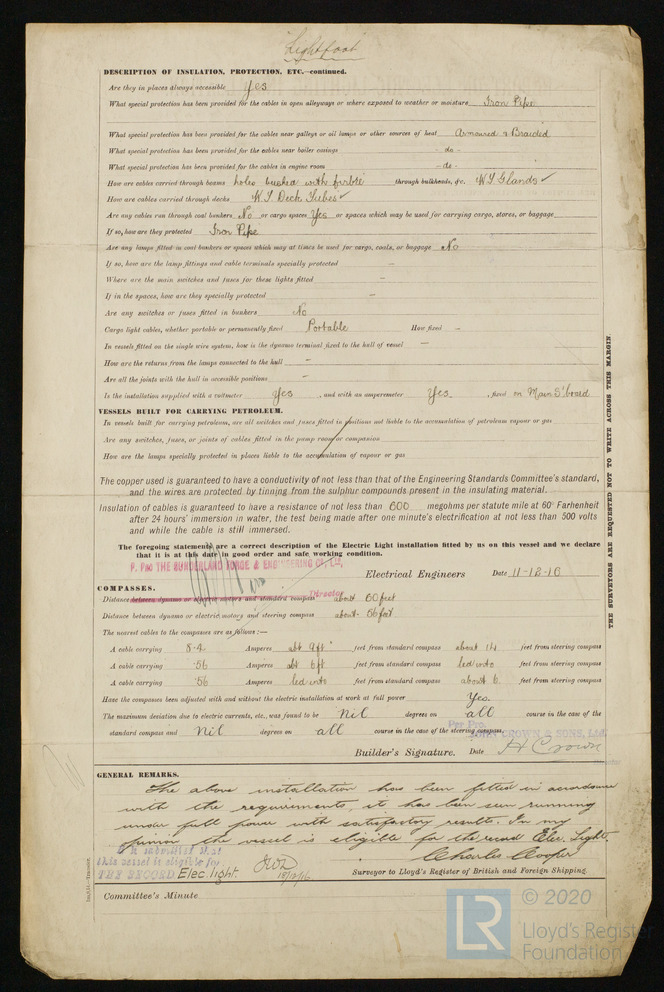 "Lightfoot"
DESCRIPTION OF INSULATION, PROTECTION, ETC.—continued.
Are they in places always accessible Yes
What special protection has been provided for the cables in open alleyways or where exposed to weather or moisture Iron Pipe
What special protection has been provided for the cables near galleys or oil lamps or other sources of heat Armoured & Braided
What special protection has been provided for the cables near boiler casings - do -
What special protection has been provided for the cables in engine room - do -
How are cables carried through beams holes bushed with fibre through bulkheads, &c. W.T Glands ✓
How are cables carried through decks W.T Deck Tubes ✓
Are any cables run through coal bunkers No or cargo spaces Yes or spaces which may be used for carrying cargo, stores, or baggage
If so, how are they protected Iron Pipe
Are any lamps fitted in coal bunkers or spaces which may at times be used for cargo, coals, or baggage No
If so, how are the lamp fittings and cable terminals specially protected —
Where are the main switches and fuses for these lights fitted —
If in the spaces, how are they specially protected —
Are any switches or fuses fitted in bunkers No
Cargo light cables, whether portable or permanently fixed Portable How fixed —
In vessels fitted on the single wire system, how is the dynamo terminal fixed to the hull of vessel —
How are the returns from the lamps connected to the hull —
Are all the joints with the hull in accessible positions —
Is the installation supplied with a voltmeter Yes , and with an amperemeter Yes , fixed on Main S'board
VESSELS BUILT FOR CARRYING PETROLEUM.
In vessels built for carrying petroleum, are all switches and fuses fitted in positions not liable to the accumulation of petroleum vapour or gas
Are any switches, fuses, or joints of cables fitted in the pump room or companion
How are the lamps specially protected in places liable to the accumulation of vapour or gas
The copper used is guaranteed to have a conductivity of not less than that of the Engineering Standards Committee's standard,
and the wires are protected by tinning from the sulphur compounds present in the insulating material.
Insulation of cables is guaranteed to have a resistance of not less than 600 megohms per statute mile at 60° Farhenheit
after 24 hours' immersion in water, the test being made after one minute's electrification at not less than 500 volts
and while the cable is still immersed.
The foregoing statements are a correct description of the Electric Light installation fitted by us on this vessel and we declare
that it is at this date in good order and safe working condition.
P. Pro THE SUNDERLAND FORGE & ENGINEERING Co., Ltd.
Electrical Engineers Date 11-12-16
Director
COMPASSES.
Distance between dynamo or electric motors and standard compass about 60 feet
Distance between dynamo or electric motors and steering compass about 56 feet
The nearest cables to the compasses are as follows:—
A cable carrying 8.4 Amperes abt 9ft feet from standard compass about 14 feet from steering compass
A cable carrying .56 Amperes abt 6ft feet from standard compass led into feet from steering compass
A cable carrying .56 Amperes led into feet from standard compass about 6 feet from steering compass
Have the compasses been adjusted with and without the electric installation at work at full power Yes.
The maximum deviation due to electric currents, etc., was found to be Nil degrees on all course in the case of the
standard compass and Nil degrees on all course in the case of the steering compass.
Per Pro. JOHN CROWN & SONS, Ltd.
Builder's Signature. Date H Crown
GENERAL REMARKS.
The above installation has been fitted in accordance
with the requirements, it has been seen running
under full power with satisfactory results. In my
opinion the vessel is eligible for the record Elec. Light
Charles Cooper
It is submitted that
this vessel is eligible for
THE RECORD Elec.light. 18/12/16
Surveyor to Lloyd's Register of British and Foreign Shipping.
Committee's Minute
THE SURVEYORS ARE REQUESTED NOT TO WRITE ACROSS THIS MARGIN.
LR
© 2020
Lloyd's Register
Foundation